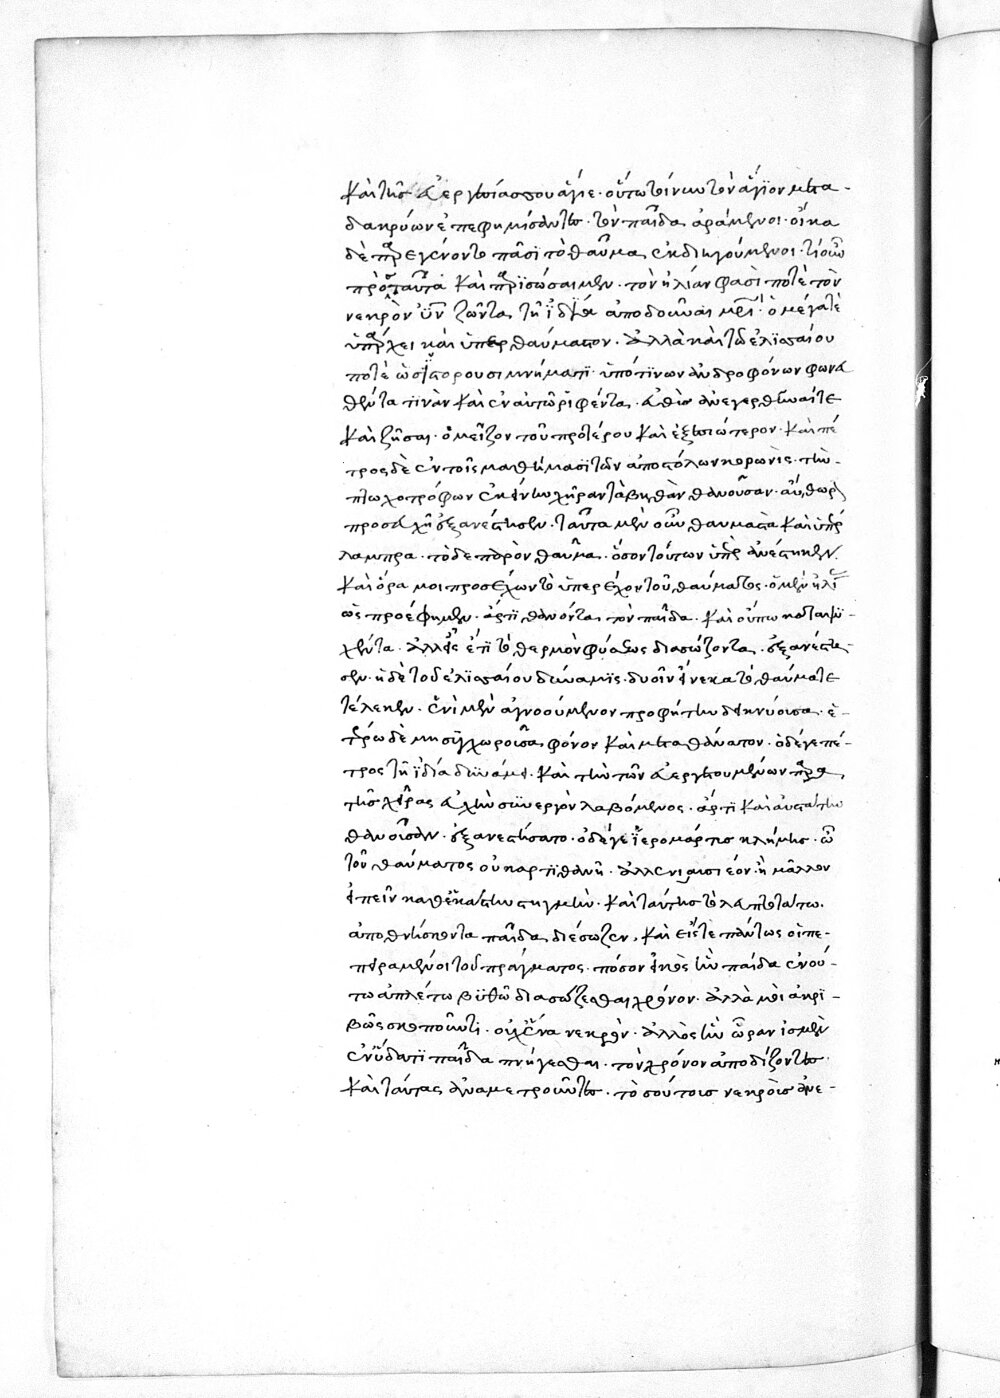 καὶ τῆς εὐεργεσίας σου ἅγιε· οὕτω τοίνυν τὸν ἅγιον μετα-
δακρύων ἐπεφημίσαντο· τὸν παῖδα ἀράμενοι· οἴκα
δὲ παρεγένοντο πᾶσι τὸ θαῦμα ἐκδιηγούμενοι· τί οὖν
πρὸς ταῦτα καὶ παρισώσαιμεν· τὸν ἠλίαν φασὶ ποτὲ τὸν
νεκρὸν υἱὸν ζῶντα τῆ ἰδίᾳ ἀποδοῦναι μητρί· ὃ μέγα τὲ
ὑπάρχει καὶ ὑπερθαύμαστον· ἀλλὰ καὶ τῶ ἐλισσαίου
ποτὲ ὡς ἱστοροῦσι μνήματι· ὑπό τινων ἀνδροφόνων φωνα
θέντα τινὰν καὶ ἐν αὐτῶ ῥιφέντα· αὖθις ἀνεγερθῆναί τε
καὶ ζῆσαι· ὃ μεῖζον τοῦ προτέρου καὶ ἐξαισιώτερον· καὶ πέ
τρος δὲ ἐν τοῖς μαθήμασι τῶν ἀποστόλων κορωνὶς· τὴν-
πτωχοτρόφον ἐκείνην χήραν ταβηθὰν θανοῦσαν· αὐθωρὶ
προσευχῆ ἐξανέστησεν· ταῦτα μὲν οὖν θαυμαστὰ καὶ ὑπὲρ
λαμπρα· τὸ δε παρὸν θαῦμα· ὅσον τούτων ὑπερανέστηκεν.
καὶ ὅρα μοι προσέχων τὸ ὑπερέχον τοῦ θαύματος· ὁ μὲν ἠλί
ας προέφημεν· ἄρτι θανόντα τὸν παῖδα· καὶ οὔπω καταψυ-
χθέντα· ἀλλ' ἔτι τὸ θερμὸν φύσεως διασώζοντα· ἐξανέστη-
σεν· ἡ δὲ τοῦ ἐλισσαίου δύναμις· δυοῖν ἕνεκα τὸ θαῦμα τε
τέλεκεν· ἓν μὲν ἀγνοούμενον προφήτην δεικνύουσα· ἑ-
τέρω δὲ μὴ συγχωροῦσα φόνον καὶ μετα θάνατον· ὁ δέ γε πέ-
τρος τῆ ἰδία δυνάμει· καὶ τὴν τῶν εὐεργετουμένων παρα
τῆς χήρας εὐχὴν συνεργὸν λαβόμενος· ἄρτι καὶ αὐτὸς τὴν
θανοῦσαν· ἐξανεστήσατο· ὁ δέ γε ἱερομάρτυς κλήμης· ὢ
τοῦ θαύματος οὐκ ἀρτιθανῆ· ἀλλ' ἐνιαυσιαῖον· ἢ μᾶλλον
εἰπεῖν καθ' ἑκάστην στιγμὴν· καὶ ταύτης τὸ λεπτότατον.
ἀποθνήσκοντα παῖδα διέσωζεν· καὶ εἴπατε πάντως οἱ πε-
πειραμένοι τοῦ πράγματος· πόσον εἰκὸς ἐστὶν παῖδα ἐν οὕ-
τω ἀπλέτω βυθῶ διασώζεσθαι χρόνον· ἀλλὰ μοι ἀκρι-
βῶς σκοποῦντι· οὐχ ἕνα νεκρὸν· ἀλλ' ὅσην ὥραν ἴσμεν
ἐν ὕδατι παῖδα πνίγεσθαι· τὸν χρόνον ἀποδίζοντες·
καὶ ταύτας ἀναμετροῦντες· τὸ σούτοις νεκροῖς ἀνε-